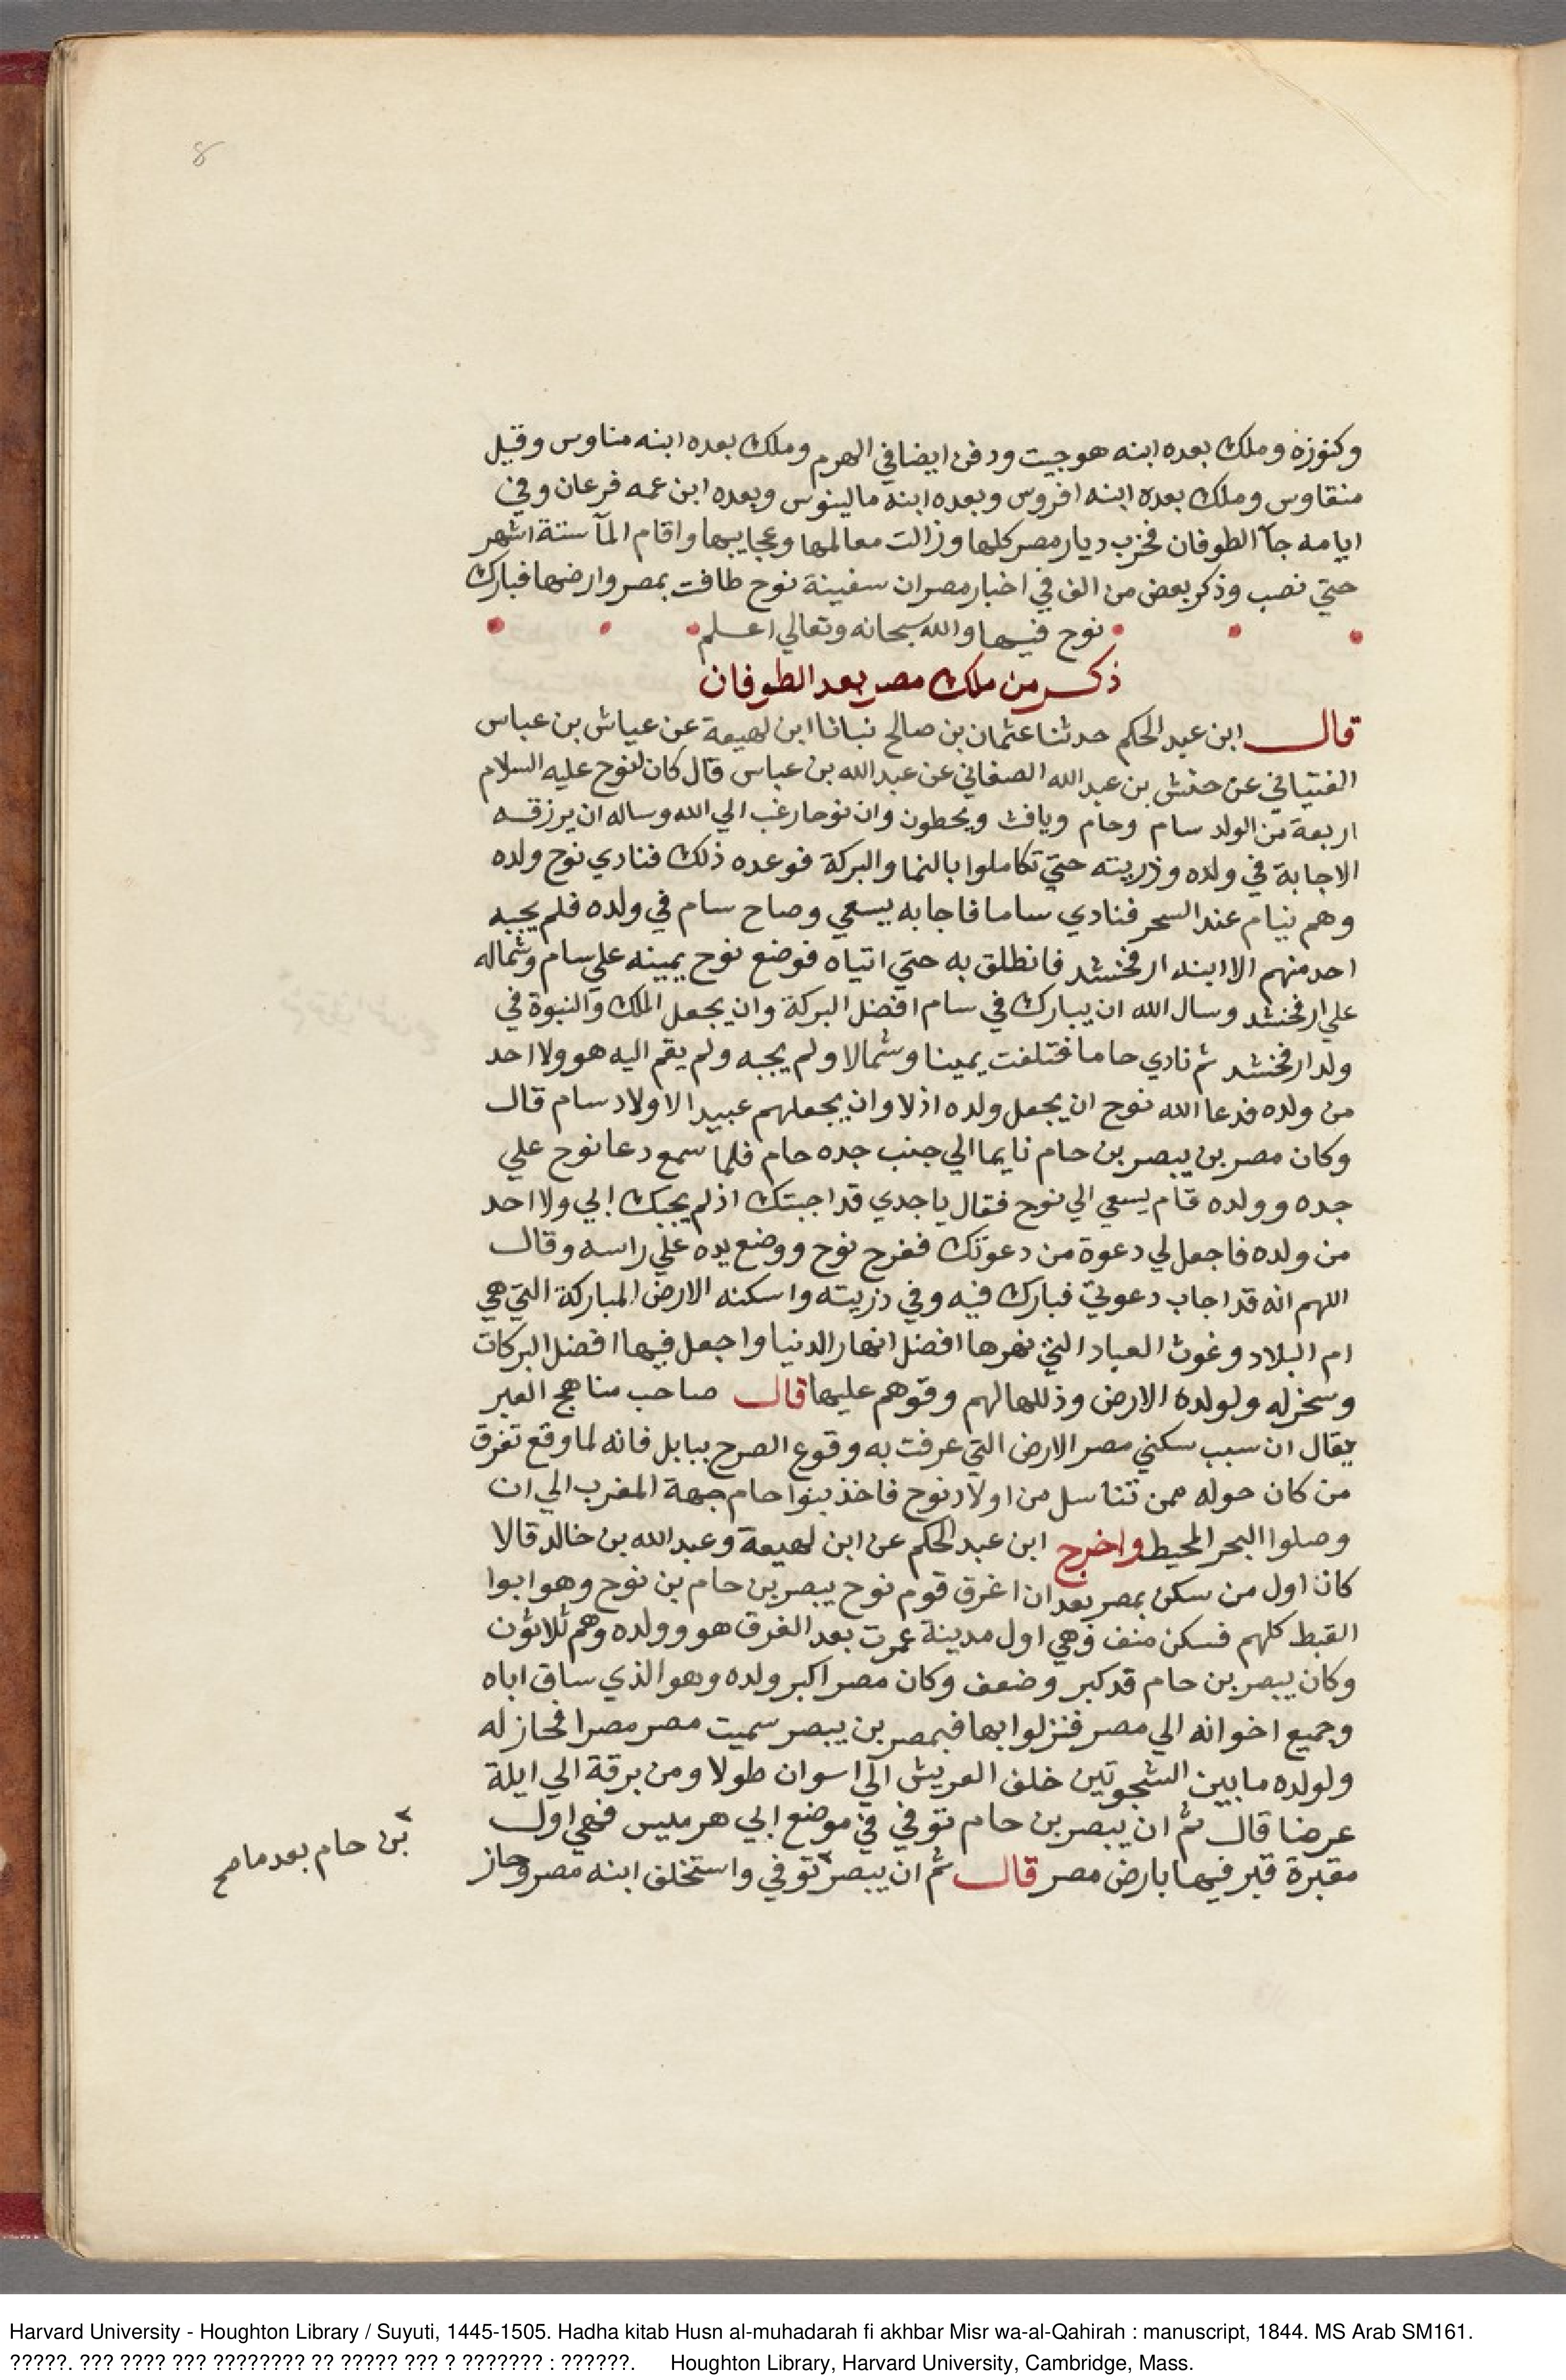 8
وكنوزه وملك بعده ابنه هوجيت ودفن ايضا في الهرم وملك بعده ابنه مناوس وقيل
منقاوس وملك بعده ابنه افروس وبعده ابنه مالينوس وبعده ابن عمه فرعان وفي
ايامه جآ الطوفان فخرب ديار مصر كلها وزالت معالمها وعجايبها واقام المآ ستة اشهر
حتي نصب وذكر بعض من الف في اخبار مصر ان سفينة نوح طافت بمصر وارضها فبارك
نوح فيها والله سبحانه وتعالي اعلم
ذكر من ملك مصر بعد الطوفان
قال ابن عبد الحكم حدثنا عثمان بن صالح نبانا ابن لهيعة عن عياش بن عباس
الفتياني عن حنش بن عبد الله الصغاني عن عبد الله بن عباس قال كان لنوح عليه السلام
اربعة من الولد سام وحام ويافث ويحطون وان نوحا رغب الي الله وساله ان يرزقه
الاجابة في ولده وذريته حتي تكاملوا بالنما والبركة فوعده ذلك فنادي نوح ولده
وهم نيام عند السحر فنادي ساما فاجابه يسعي وصاح سام في ولده فلم يجبه
احد منهم الا ابنه ارفخشد فانطلق به حتي اتياه فوضع نوح يمينه علي سام وشماله
علي ارفخشد وسال الله ان يبارك في سام افضل البركة وان يجعل الملك والنبوة في
ولد ارفخشد ثم نادي حاما فتلفت يمينا وشمالا ولم يجبه ولم يقم اليه هو ولا احد
من ولده فدعا الله نوح ان يجعل ولده اذلا وان يجعلهم عبيدا لاولاد سام قال
وكان مصر بن بيصر بن حام نايما الي جنب جده حام فلما سمع دعا نوح علي
جده وولده قام يسعي الي نوح فقال يا جدي قد اجبتك اذ لم يجبك ابي ولا احد
من ولده فاجعل لي دعوة من دعوتك ففرح نوح ووضع يده علي راسه وقال
اللهم انه قد اجاب دعوتي فبارك فيه وفي ذريته واسكنه الارض المباركة التي هي
ام البلاد وغوث العباد التي نهرها افضل انهار الدنيا واجعل فيها افضل البركات
وسخر له ولولده الارض وذللها لهم وقوهم عليها قال صاحب مناهج العبر
يقال ان سبب سكني مصر الارض التي عرفت به وقوع الصرح ببابل فانه لما وقع تفرق
من كان حوله ممن تناسل من اولاد نوح فاخذ بنوا حام جهة المغرب الي ان
وصلوا البحر المحيط واخرج ابن عبد الحكم عن ابن لهيعة وعبد الله بن خالد قالا
كان اول من سكن بمصر بعد ان اغرق قوم نوح بيصر بن حام بن نوح وهو ابوا
القبط كلهم فسكن منف وهي اول مدينة عمرت بعد الغرق هو وولده وهم ثلاثون
وكان بيصر بن حام قد كبر وضعف وكان مصر اكبر ولده وهو الذي ساق اباه
وجميع اخوانه الي مصر فنزلوا بها فبمصر بن بيصر سميت مصر مصرا فحاز له
ولولده ما بين الشجرتين خلف العريش الي اسوان طولا ومن برقة الي ايلة
عرضا قال ثم ان بيصر بن حام توفي في موضع ابي هرميس فهي اول
مقبرة قبر فيها بارض مصر قال ثم ان بيصر توفي واستخلف ابنه مصر وحاز
بن حام بعد ما صح
Harvard University - Houghton Library / Suyuti, 1445-1505. Hadha kitab Husn al-muhadarah fi akhbar Misr wa-al-Qahirah : manuscript, 1844. MS Arab SM161.
?????. ??? ???? ??? ???????? ?? ????? ??? ? ??????? : ??????. Houghton Library, Harvard University, Cambridge, Mass.